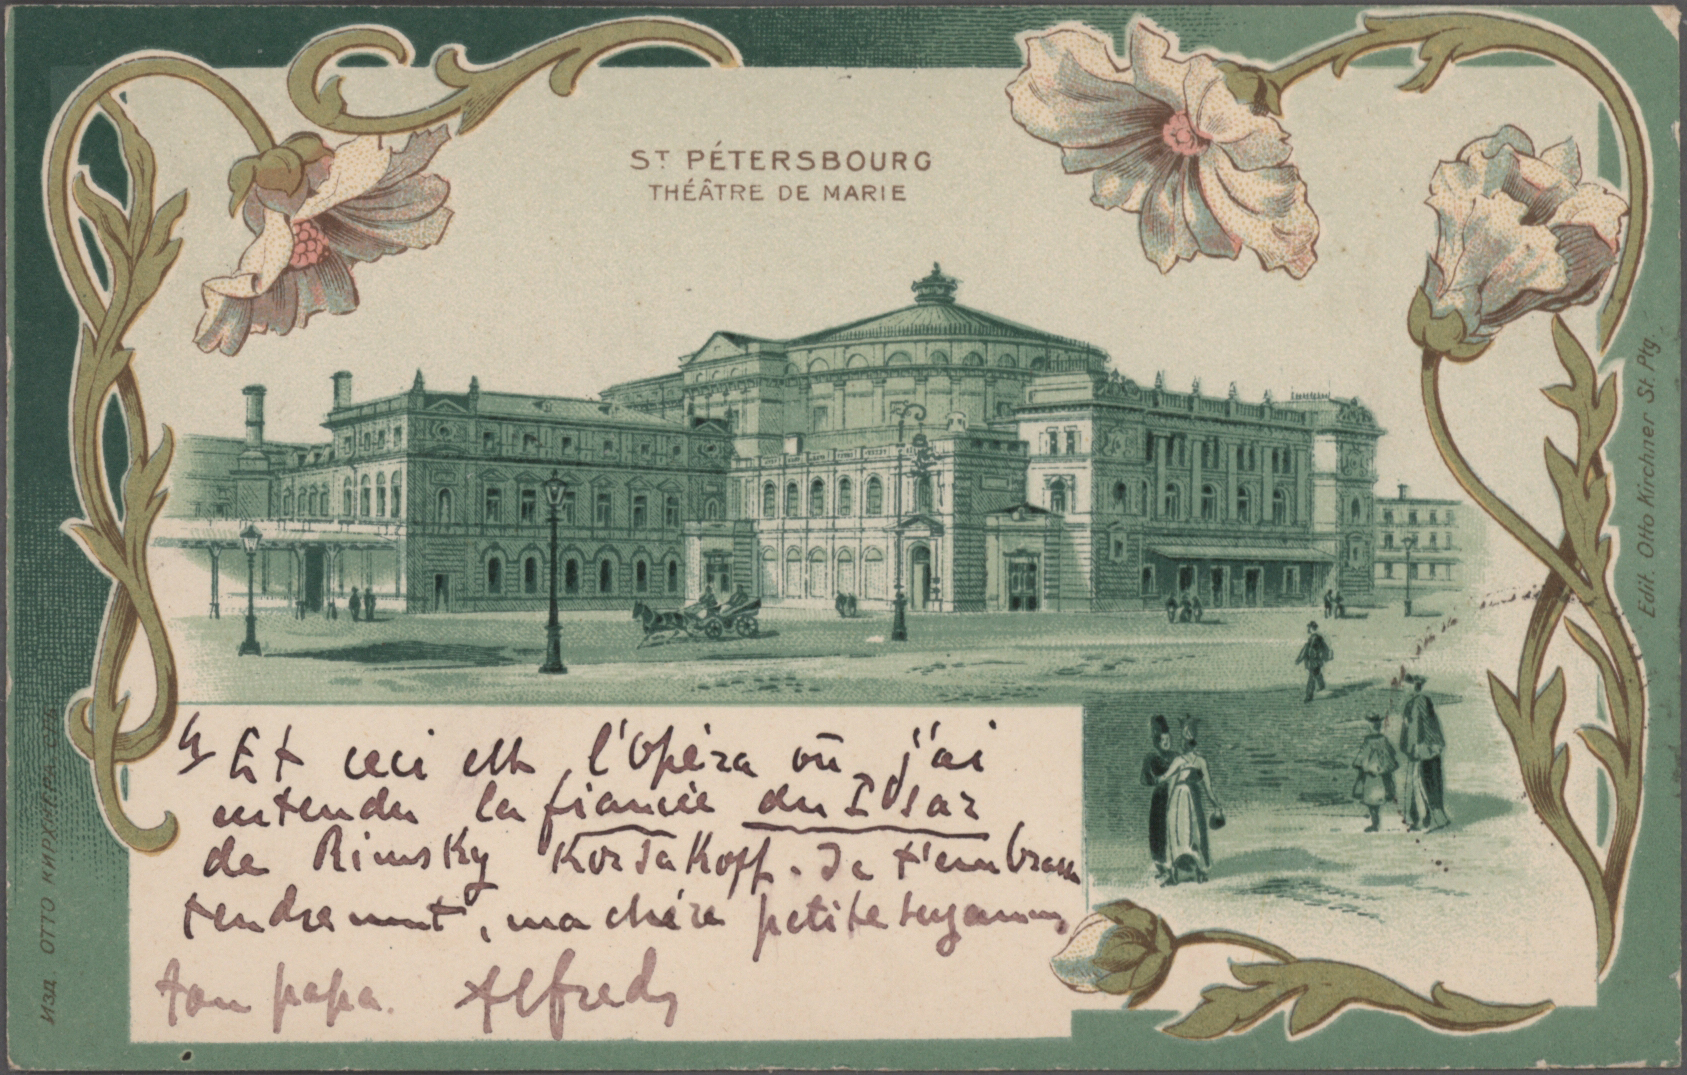 ST PÉTERSBOURG
THÉÂTRE DE MARIE
Edit. Otto Kirchner. St. Ptg.
Изд. ОТТО КИРХНЕРА СПБ.
4 Et ceci est l'opéra où j'ai
entendu la fiancée du Tsar
de Rimsky Korsakoff. Je t'embrasse
tendrement, ma chère petite
ton papa. Alfred